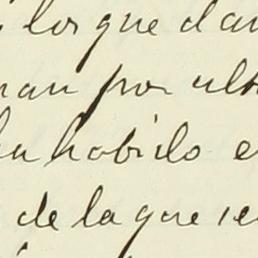 los que dan
nan por ult
ha habido e
de la que se